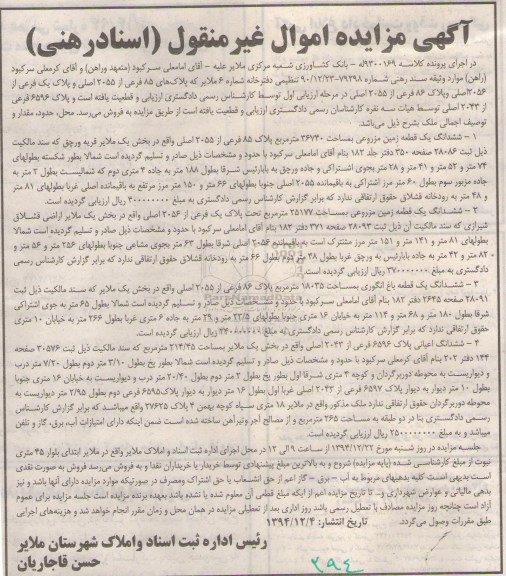 آگهی مزایده اموال غیرمنقول (اسنادرهنی)
در اجرای پرونده کلاسه ۹۳۰۰۱۶۹له – بانک کشاورزی شعبه مرکزی ملایر علیه – آقای امامعلی سرکبود (متعهد وراهن) و آقای کرمعلی سرکبود
(راهن) موارد وثیقه سند رهنی شماره ۷۹۲۹۸–۹۰/۱۲/۲۳ تنظیمی دفترخانه شماره ۶ ملایر که پلاک‌های ۸۵ فرعی از ۲۰۵۵ اصلی و پلاک یک فرعی از
۲۰۵۶اصلی وپلاک ۸۶ فرعی از ۲۰۵۵ اصلی در مرحله ارزیابی اول توسط کارشناس رسمی دادگستری ارزیابی و قطعیت یافته است و پلاک ۶۵۹۶ فرعی
از ۲۰۴۳ اصلی توسط هیات سه نفره کارشناسان رسمی دادگستری ارزیابی و قطعیت یافته است از طریق مزایده به فروش می‌رسد. محل، حدود، مقدار و
توصیف اجمالی ملک بشرح ذیل می‌باشد.
۱ – ششدانگ یک قطعه زمین مزروعی بمساحت ۳۶۷۴۰ مترمربع پلاک ۸۵ فرعی از ۲۰۵۵ اصلی واقع در بخش یک ملایر قریه ورچق که سند مالکیت
ذیل ثبت ۲۸۰۸۶ صفحه ۳۵۰ دفتر جلد ۱۸۲ بنام آقای امامعلی سرکبود با حدود و مشخصات ذیل صادر و تسلیم گردیده است شمالا بطور شکسته بطولهای
۷۴ متر و ۵۲ متر و ۴۱ متر و ۲۸ متر بجوی اشتراکی و جاده ورچق به بابارئیس شرقا بطول ۱۸۸ متر به جاده ۴ متری دوم که شمالیست بطول ۲ متر به
جاده مزبور سوم بطول ۶۰ متر مرز اشتراکی به باقیمانده ۲۰۵۵ اصلی جنوبا بطولهای ۶۶ متر و ۱۵۰ متر مرز مرتفع به باقیمانده اصلی غربا بطولهای ۸۱ متر
و ۴۸ متر به رودخانه قشلاق حقوق ارتفاقی ندارد که برابر گزارش کارشناس رسمی دادگستری به مبلغ ۴۰۰۰۰۰۰۰۰ ریال ارزیابی گردیده است.
۲ – ششدانگ یک قطعه زمین مزروعی بمساحت ۲۵۱۷۷ مترمربع تحت پلاک یک فرعی از ۲۰۵۶ اصلی واقع در بخش یک ملایر اراضی قشلاق
شیرازی که سند مالکیت آن ذیل ثبت ۲۸۰۹۳ صفحه ۳۷۱ دفتر ۱۸۲ بنام آقای امامعلی سرکبود با حدود و مشخصات ذیل صادر و تسلیم گردیده است شمالا
بطولهای ۸۱ متر و ۱۴۱ متر و ۱۵۱ متر مرز مشترک است به باقیمانده ۲۰۵۶ اصلی شرقا بطول ۶۳ متر بجوی مشاعی جنوبا بطولهای ۲۵۶ متر و ۵۶ متر و
۸۲ متر و ۴۲ متر به جاده بابارئیس به ورچق غربا بطول ۴۸ متر دوم بطول ۶۶ متر به رودخانه قشلاق حقوق ارتفاقی ندارد که برابر گزارش کارشناس رسمی
دادگستری به مبلغ ۳۷۰۰۰۰۰۰۰ ریال ارزیابی گردیده است.
۳ – ششدانگ یک قطعه باغ انگوری بمساحت ۱۸۰۳۵ مترمربع پلاک ۸۶ فرعی از ۲۰۵۵ اصلی واقع در بخش یک ملایر که سند مالکیت ذیل ثبت
۲۸۰۹۱ صفحه ۲۶۴۵ دفتر ۱۸۲ بنام آقای امامعلی سرکبود با حدود و مشخصات ذیل صادر و تسلیم گردیده است شمالا بطول ۶۵ متر به جوی اشتراکی
شرقا بطول ۱۸۰ متر و ۶۸ متر و ۱۱۴ متر به خیابان ۱۶ متری جنوبا بطولهای ۲۲/۵ متر و ۲۹ متر به جاده ۶ متری غربا بطول ۲۶۶ متر به خیابان ۱۰ متری
حقوق ارتفاقی ندارد که برابر گزارش کارشناس رسمی دادگستری به مبلغ ۲۴۰۰۰۰۰۰۰ ریال ارزیابی گردیده است.
۴ – ششدانگ اعیانی پلاک ۶۵۹۶ فرعی از ۲۰۴۳ اصلی واقع در بخش یک ملایر بمساحت ۲۱۴/۴۵ مترمربع که سند مالکیت ذیل ثبت ۳۰۵۷۶ صفحه
۱۴۴ دفتر ۲۰۲ بنام آقای کرمعلی سرکبود با حدود و مشخصات ذیل صادر و تسلیم گردیده است شمالا بطور پخ بطول ۳/۱۰ متر دوم بطول ۷/۲۰ متر درب
و دیواریست به محوطه دوربرگردان و کوچه ۴ متری شرقا اول بطور پخ بطول ۳ متر دوم بطول ۲۰/۴۰ متر درب و دیواریست به خیابان ۱۶ متری جنوبا
بطول ۱۰ متر دیوار به دیوار پلاک ۶۵۹۷ فرعی از ۲۰۴۳ اصلی غربا اول بطول ۱۶ متر دیوار به دیوار پلاک ۶۵۹۵ فرعی دوم بطول ۲/۹۵ متر دیواریست به
محوطه دوربرگردان حقوق ارتفاقی ندارد ملک مذکور واقع در ملایر ۱۸ متری سپاه کوچه بهمن ۴ پلاک ۳۷۶۳۵ واقع میباشد که برابر گزارش کارشناس
رسمی دادگستری بنا در دو طبقه به مساحت ۳۶۵ مترمربع و از مصالح آجر وتیرآهن ساخته شده است ضمن اینکه دارای امتیازات آب، برق، گاز و تلفن
میباشد و به مبلغ ۲۵۰۰۰۰۰۰۰۰ ریال ارزیابی گردیده است.
جلسه مزایده در روز شنبه مورخ ۱۳۹۴/۱۲/۲۲ از ساعت ۹ الی ۱۲ در محل اجرای اداره ثبت اسناد و املاک ملایر واقع در ملایر ابتدای بلوار ۴۵ متری
نبوت از مبلغ کارشناسی شده (پایه مزایده) شروع و به بالاترین مبلغ پیشنهادی توسط خریدار یا خریداران نقدا و به فروش می‌رسد فروش به صورت نقدی
است بدیهی است کلیه بدهیهای مربوط به آب – برق – گاز اعم از حق انشعاب یا حق اشتراک ومصرف در صورتیکه مورد مزایده دارای آنها باشد و نیز
بدهی مالیاتی و عوارض شهرداری و... تا تاریخ مزایده اعم از اینکه مبلغ قطعی آن معلوم شده یا نشده باشد بعهده برنده مزایده است جلسه مزایده برای عموم
آزاد است چنانچه روز مزایده مصادف با تعطیل رسمی باشد روز اداری بعد از تعطیلی مزایده در همان محل و زمان مقرر انجام خواهد شد و هزینه‌های اجرایی
طبق مقررات وصول می‌گردد.
تاریخ انتشار: ۱۳۹۴/۱۲/۴
رئیس اداره ثبت اسناد واملاک شهرستان ملایر
حسن قاجاریان
۳۹۴